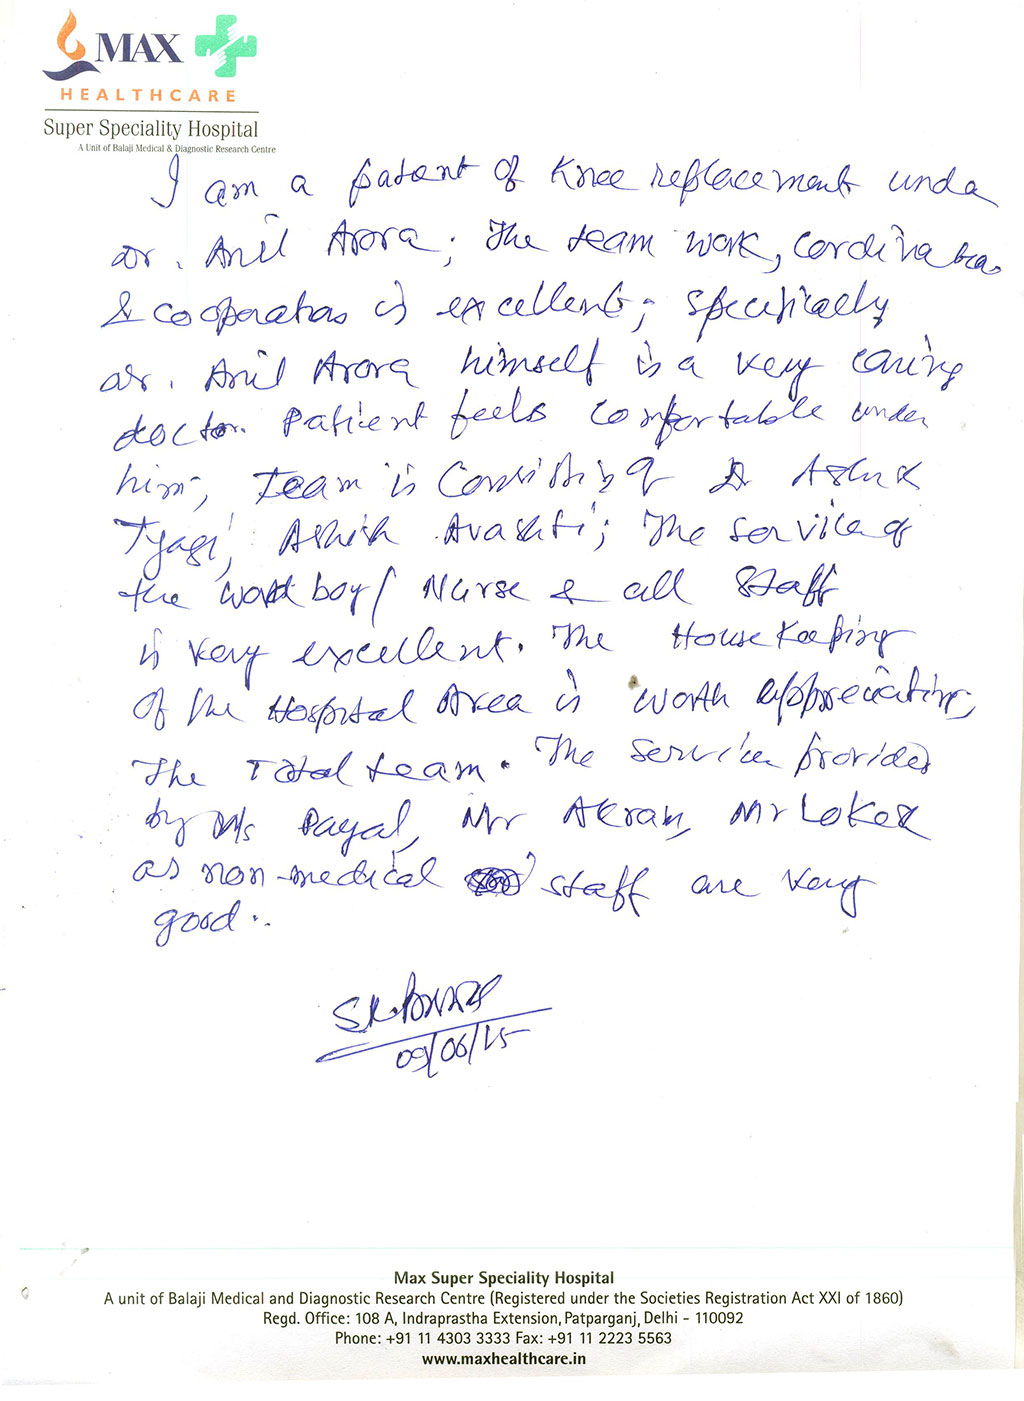 MAX
HEALTHCARE
Super Speciality Hospital
A Unit of Balaji Medical & Diagnostic Research Centre
I am a patent of Knee replacement unda
Dr. Anil Arora; The team work, Cordination
& cooperation is excellent; specifically
Dr. Anil Arora himself is a very caring
doctor. Patient feels comfortable under
him; Team is Consisting of Dr
Tyagi, Ashish Avashti; The service of
the ward boy/ Nurse & all Staff
is very excellent. The House Keeping
of the Hospital Area is worth appreciating,
The Total team. The service provided
by Ms Payal, Mr Akram, Mr Lokesh
as non-medical staff are very
good..
09/06/15
Max Super Speciality Hospital
A unit of Balaji Medical and Diagnostic Research Centre (Registered under the Societies Registration Act XXI of 1860)
Regd. Office: 108 A, Indraprastha Extension, Patparganj, Delhi - 110092
Phone: +91 11 4303 3333 Fax: +91 11 2223 5563
www.maxhealthcare.in